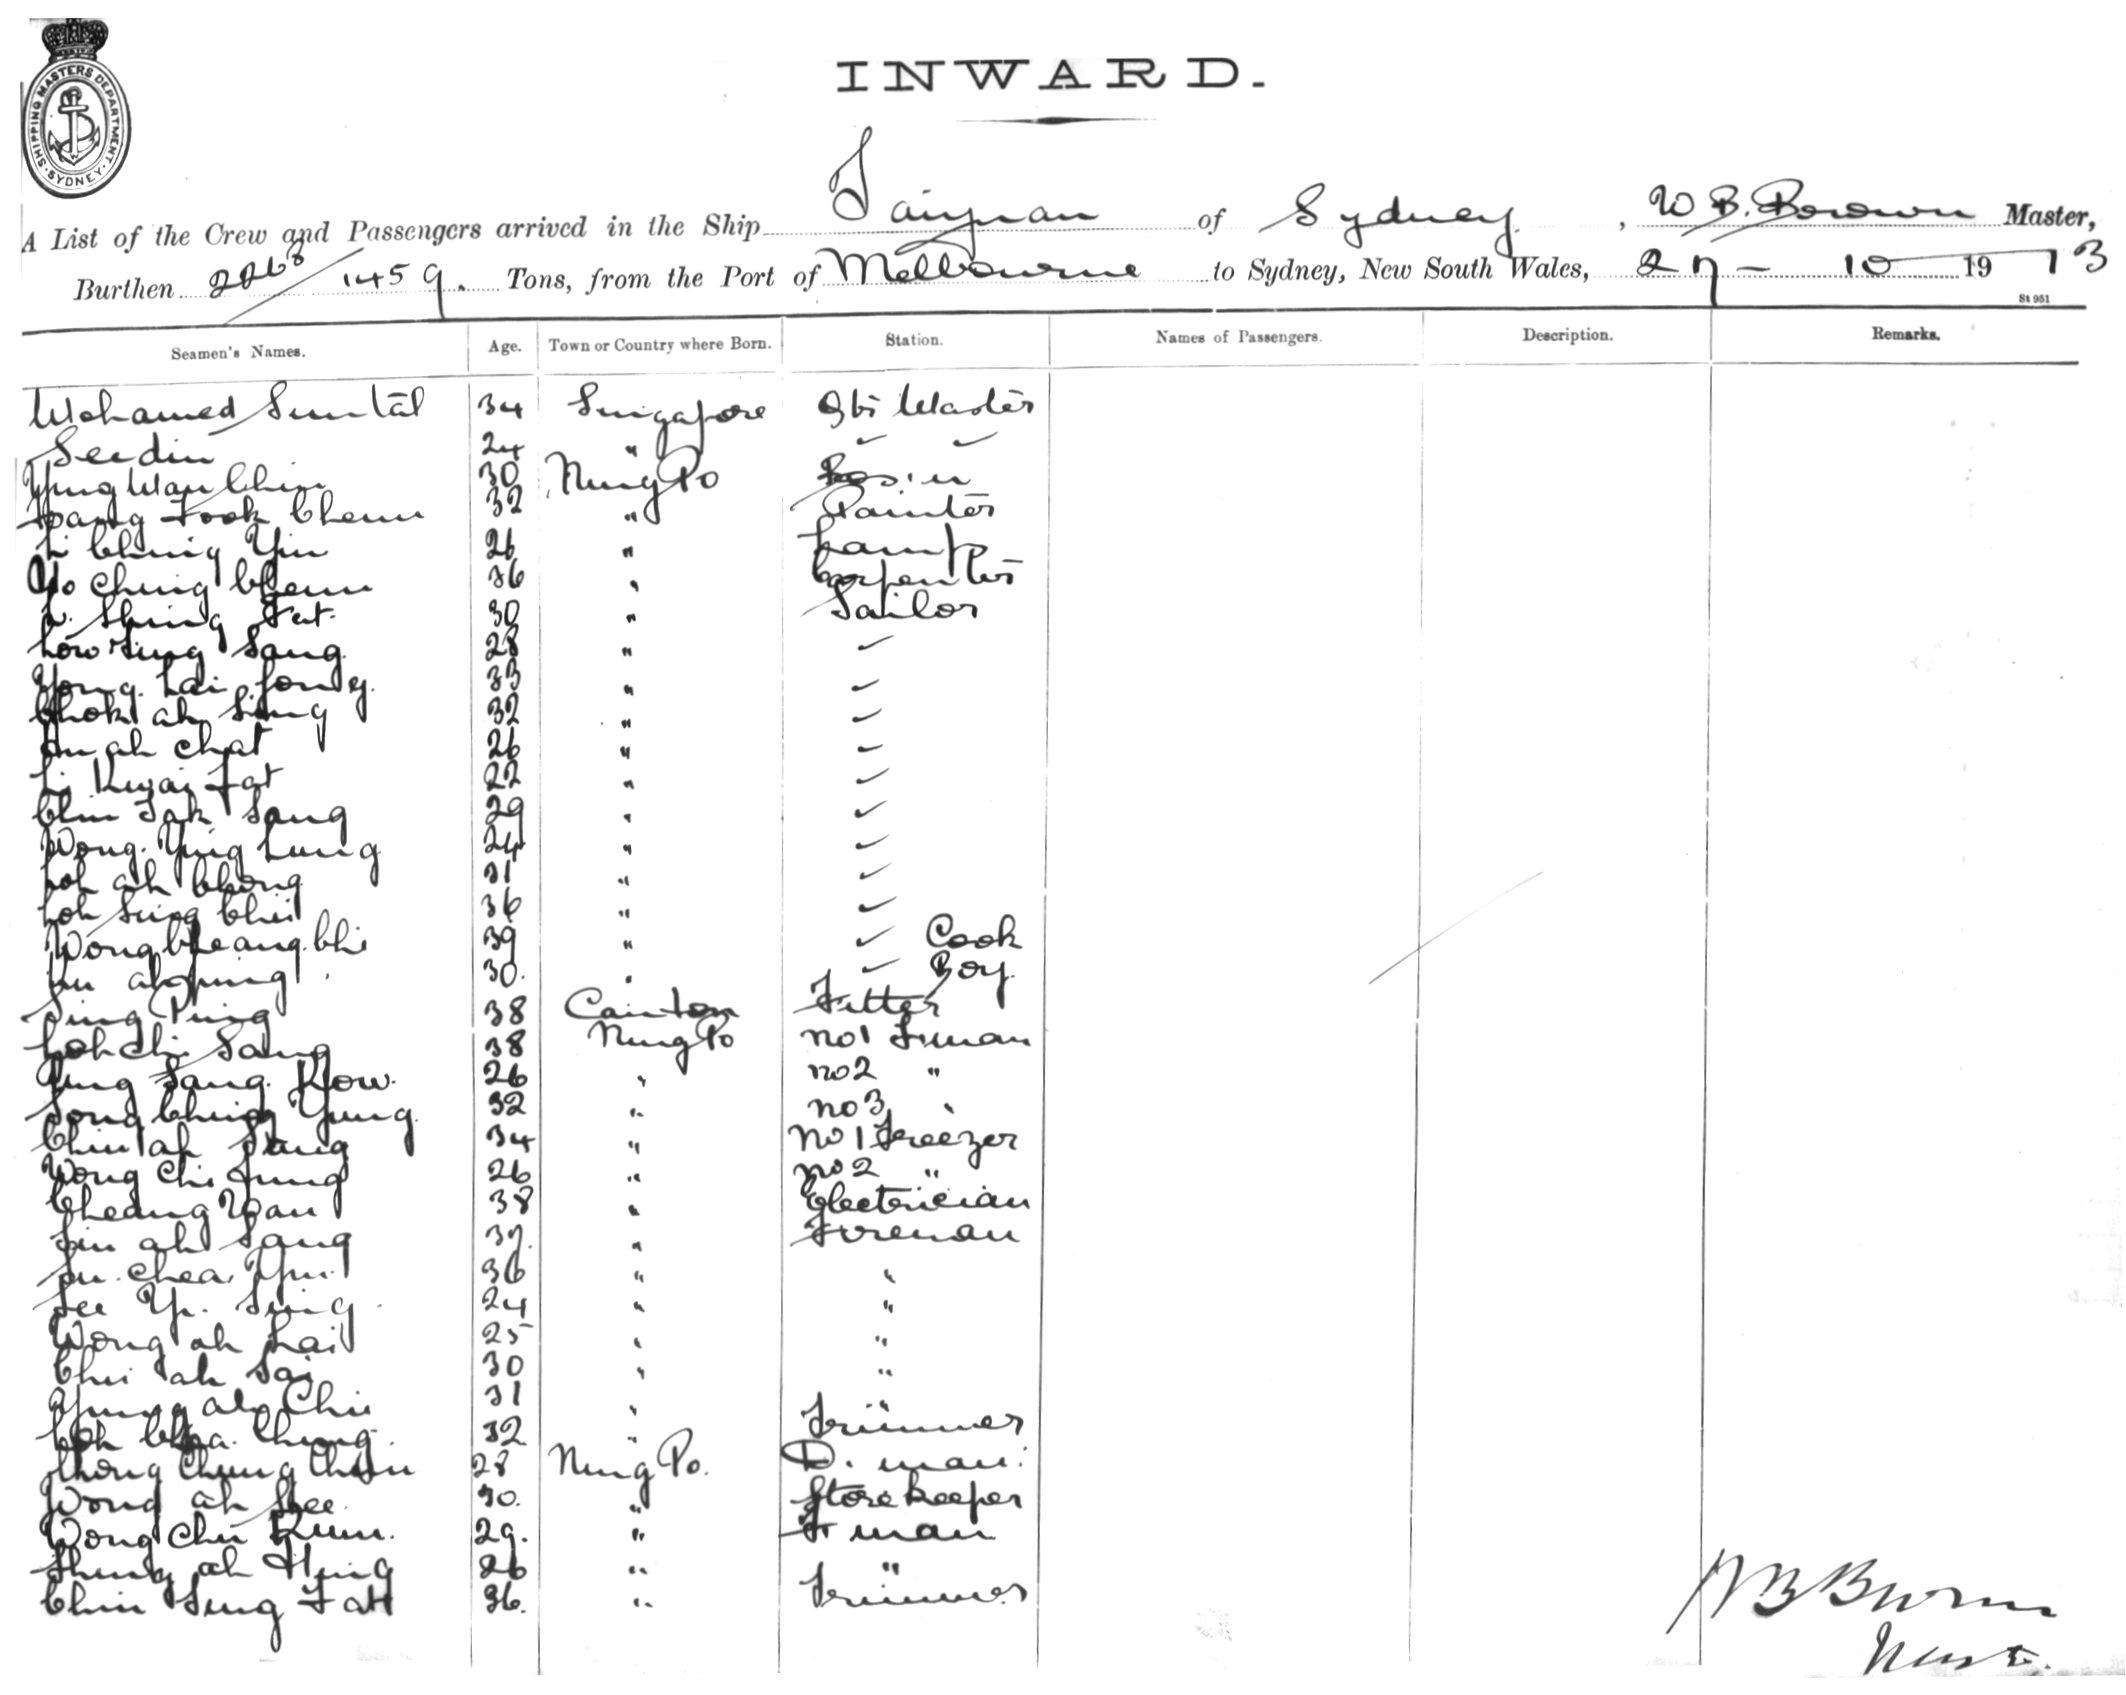 SHIPPING MASTERS DEPARTMENT · SYDNEY ·
INWARD.
A List of the Crew and Passengers arrived in the Ship Taiyuan of Sydney, W B. Brown Master,
Burthen 2263/1459. Tons, from the Port of Melbourne to Sydney, New South Wales, 27 - 10 1913
St 951
Seamen's Names. Age. Town or Country where Born. Station. Names of Passengers. Description. Remarks.
Mohamed 34 Singapore Qtr Master
Seedin 24 " ✓ ✓
Yung Wan Chin 30 Ning Po Bos'n
Fook Chenn 32 " Painter
Li Ching Yin 26 " Lamp
Yo Ching Chenn 36 " Carpenter
Shing Fat. 30 " Sailor
Low Sing Sang 28 " ✓
Yong Lai Fong. 33 " ✓
Chok ah Sing 32 " ✓
ah chat 26 " ✓
Li Kwai Fat 22 " ✓
Chin Tak Sang 29 " ✓
Wong Ying Lung 24 " ✓
Loh ah Chong 31 " ✓
Loh Sing Chii 36 " ✓
Wong Cheang Chi 39 " ✓ Cook
ah ping 30. " ✓ Boy
Ping 38 Canton Fitter
Loh Chi Sang 38 Ning Po no1 Fireman
Yung Sang Kow. 26 " no2 "
Song Ching Yung 32 " no3 "
Chin ah Sang 34 " no1 Freezer
Wong Chi Fung 26 " no2 "
Cheang Wan 38 " Electrician
ah Sang 37. " Fireman
Chea Yin 36 " "
See Yi Sing 24 " "
Wong ah Lai 25 " "
Chii ah Sai 30 " "
Yung ah Chii 31 " "
Loh Chea Chung. 32 " Trimmer
Chong Chung Chun 28 Ning Po. D. man.
Wong ah See 30. " Storekeeper
Wong Chii Kum. 29. " F man
Shung ah Hing 26 " "
Chin Sing Fatt 36. " Trimmer
W B Brown
Master.